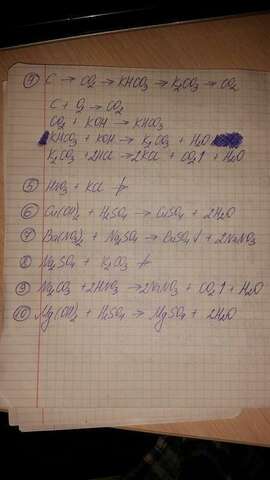 ④ C → CO₂ → KHCO₃ → K₂CO₃ → CO₂
C + O₂ → CO₂
CO₂ + KOH → KHCO₃
KHCO₃ + KOH → K₂CO₃ + H₂O
K₂CO₃ + 2HCl → 2KCl + CO₂↑ + H₂O
⑤ HNO₃ + KCl ↛
⑥ Cu(OH)₂ + H₂SO₄ → CuSO₄ + 2H₂O
⑦ Ba(NO₃)₂ + Na₂SO₄ → BaSO₄↓ + 2NaNO₃
⑧ Na₂SO₄ + K₂CO₃ ↛
⑨ Na₂CO₃ + 2HNO₃ → 2NaNO₃ + CO₂↑ + H₂O
⑩ Mg(OH)₂ + H₂SO₄ → MgSO₄ + 2H₂O